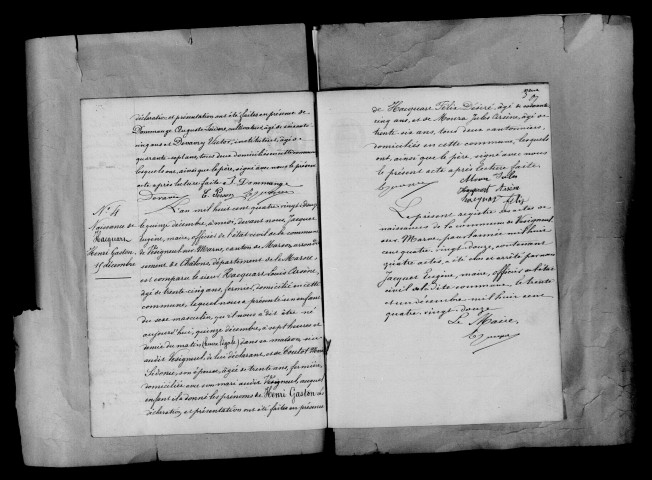 déclaration et présentation ont été faites en présence de
Dommange Auguste Isidore, cultivateur, âgé de soixante
cinq ans et Devarry Victor, instituteur, âgé de
quarante sept ans, tous deux domiciliés en cette commune
lesquels ont, ainsi que le père, signé avec nous le présent
acte après lecture faite. Dommange
N° 4
Naissance de
Hacquart
Henri Gaston
15 décembre
L'an mil huit cent quatre-vingt-douze
quinze décembre, à midi, devant nous, Jacquet
Eugène, maire, officier de l'état civil de la commune
de Vésigneul sur Marne, canton de Marson, arrondis
sement de Châlons, département de la Marne
est comparu le sieur Hacquart Louis Arsène,
âgé de trente-cinq ans, fermier, domicilié en cette
commune, lequel nous a présenté un enfant
du sexe masculin, qu'il nous a dit être né
aujourd'hui, quinze décembre, à sept heures et
demie du matin (heure légale) dans sa maison, sise
audit Vésigneul, de lui déclarant, et de
Sidonie, son épouse, âgée de trente ans, fermière,
domiciliée avec son mari audit Vésigneul, auquel
enfant il a donné les prénoms de Henri Gaston
déclaration et présentation ont été faites en présence
de Hacquart Félix Désiré, âgé de soixante
cinq ans, et de Jules Arsène, âgé de
trente six ans, tous deux cantonniers,
domiciliés en cette commune, lesquels
ont, ainsi que le père, signé avec nous
le présent acte après lecture faite
Hacquart Arsène
Hacquart Félix
Le présent registre des actes de
naissances de la commune de Vésigneul
sur Marne, pour l'année mil huit
cent quatre-vingt-douze, contenant
quatre actes, a été clos et arrêté par nous
Jacquet Eugène, maire, officier de l'état
civil de la dite commune, le trente
et un décembre mil huit cent
quatre-vingt-douze
Le Maire,